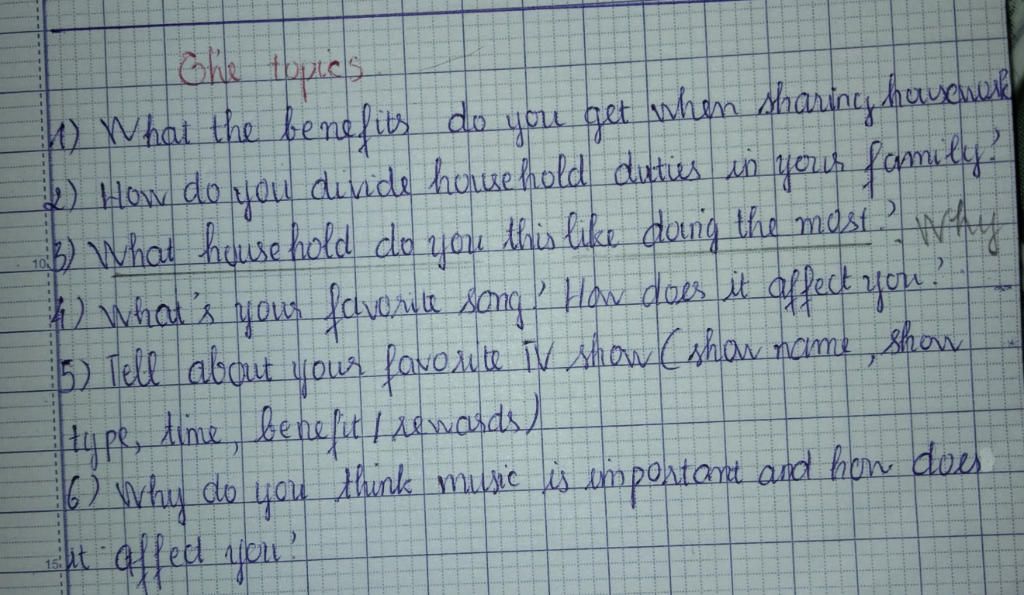 The topics
1) What the benefits do you get when sharing housework
2) How do you divide household duties in your family?
3) What household do you this like doing the most? Why
4) What's your favorite song? How does it affect you?
5) Tell about your favorite TV show (show name, show
type, time, benefit / rewards)
6) Why do you think music is important and how does
it affect you?